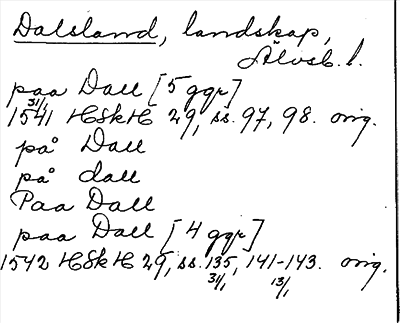 Dalsland, landskap,
Älvsb. l.
paa Dall [5 ggr]
31/1
1541 HSkH 29, ss. 97, 98. orig.
på Dall
på dall
Paa Dall
paa Dall [4 ggr]
1542 HSkH 29, ss. 135, 141-143. orig.
31/1 13/1